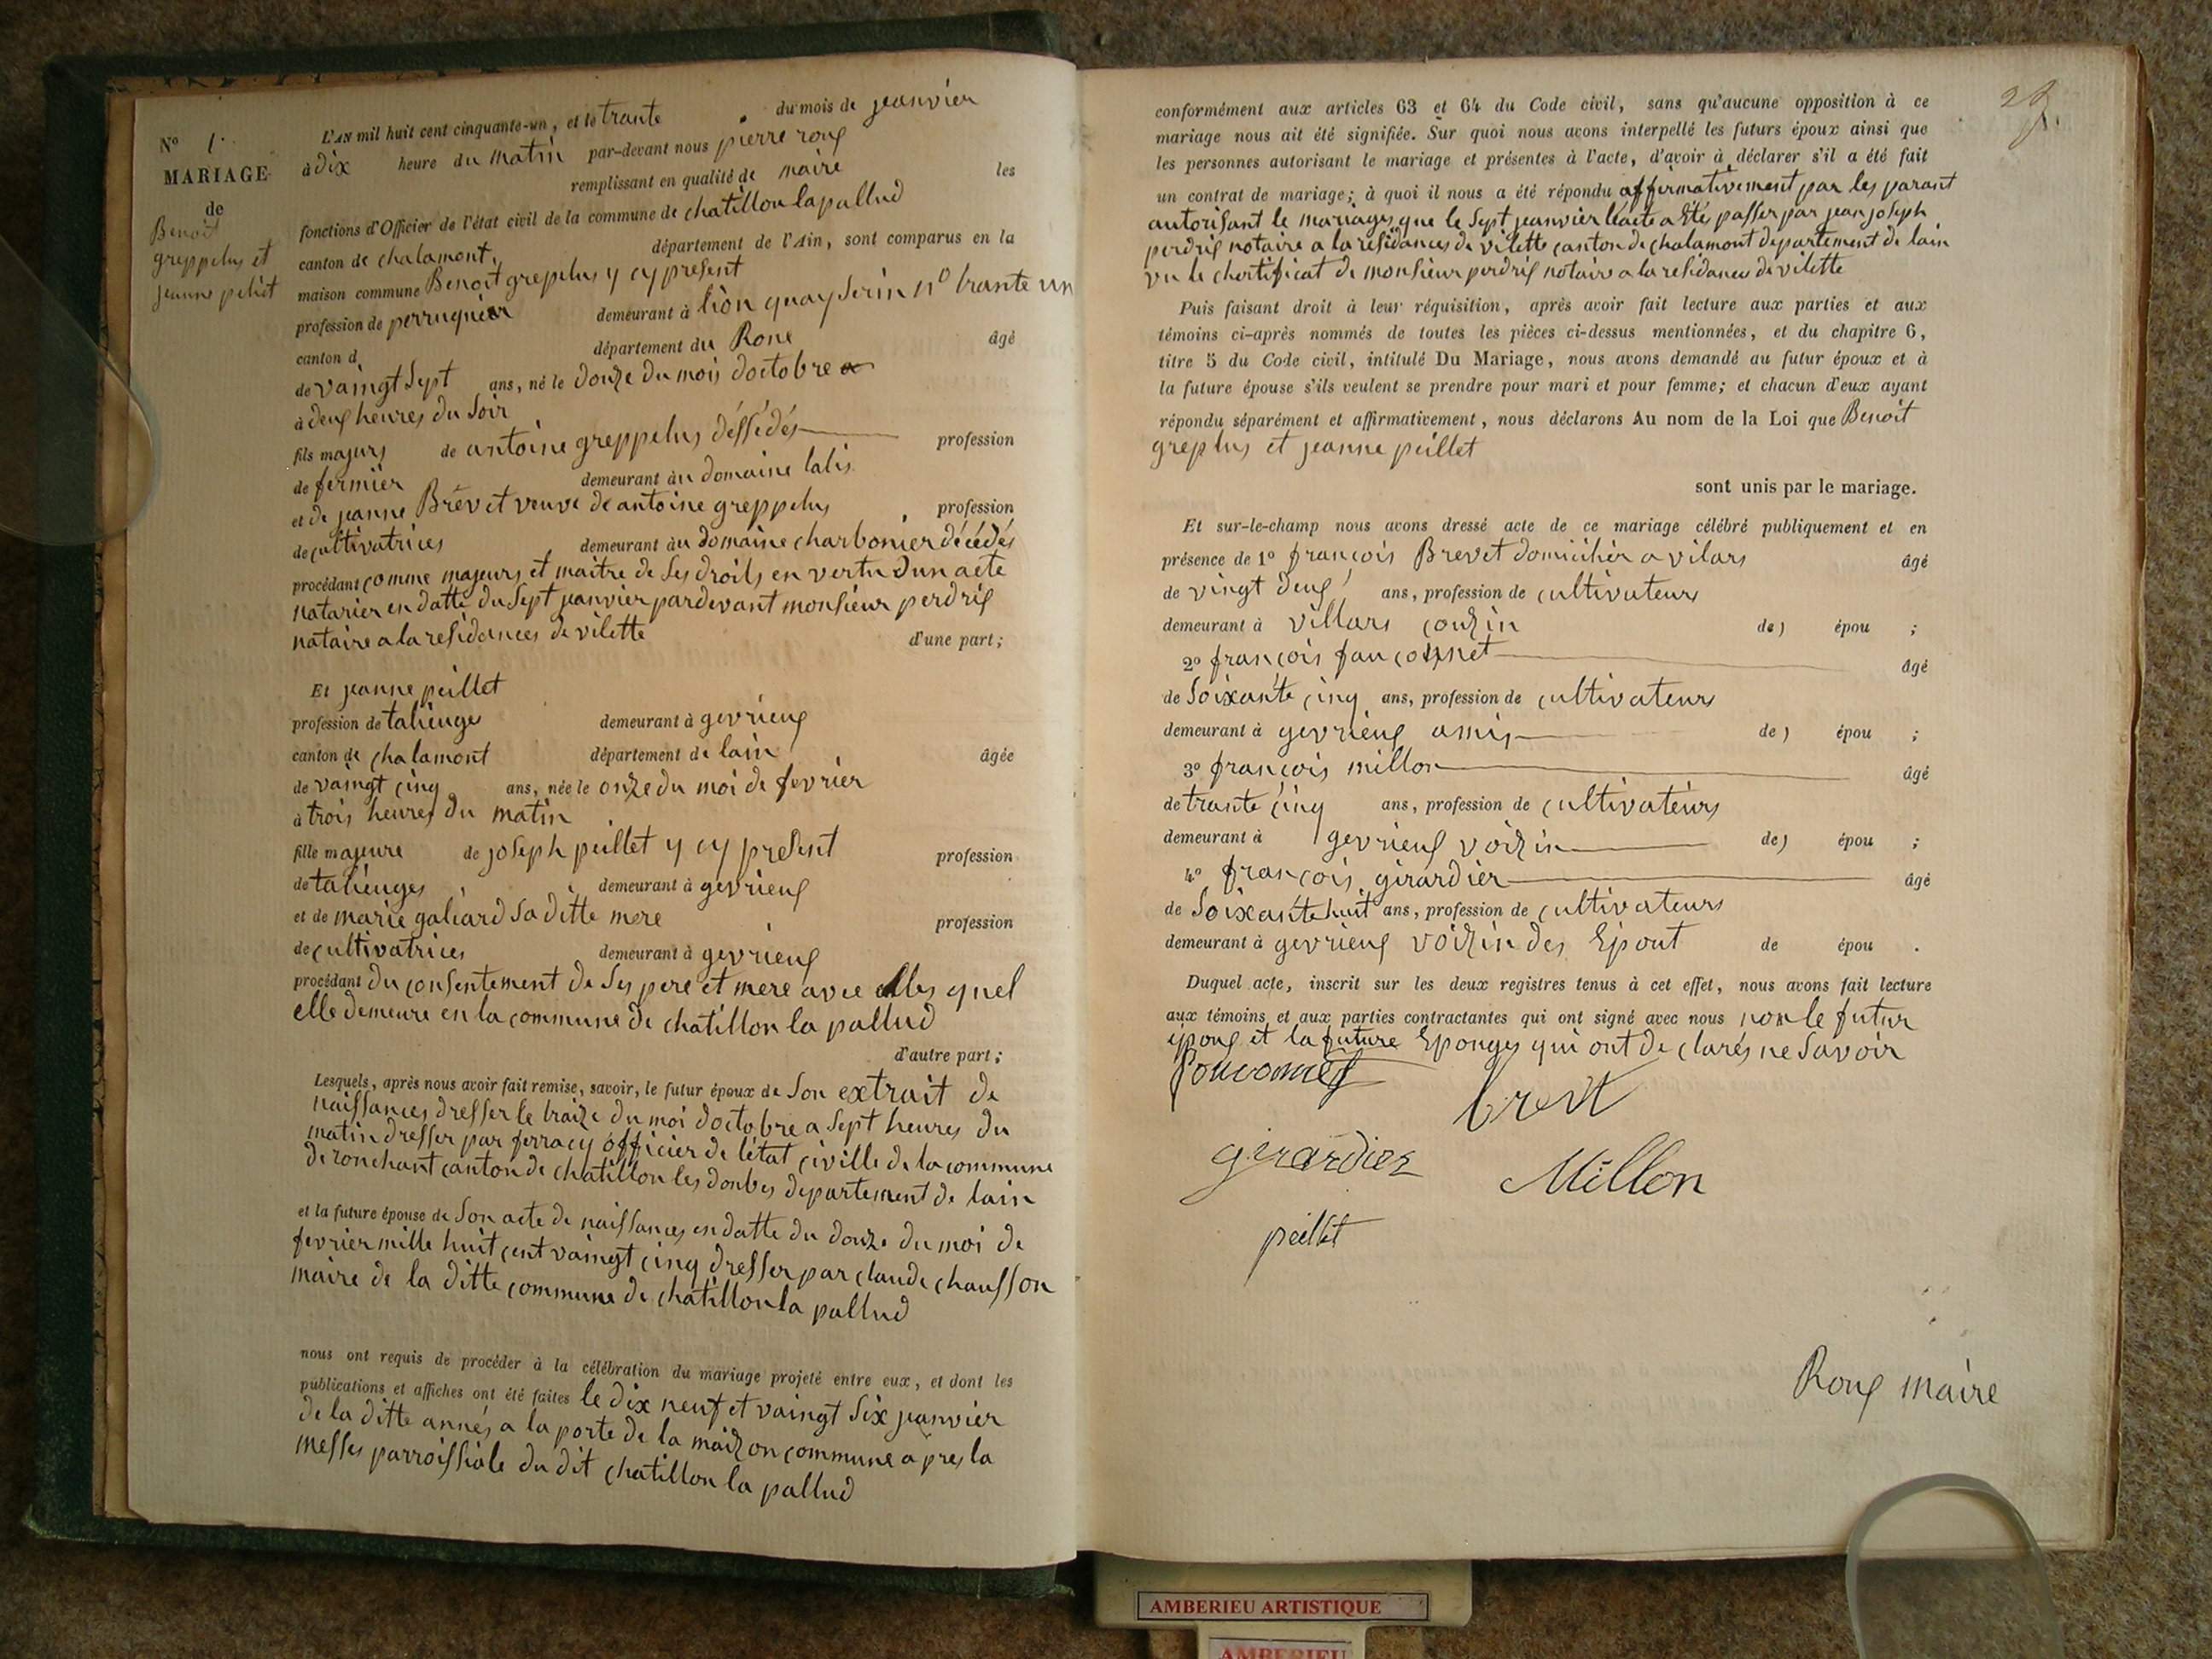 N° 1.
MARIAGE
de
Benoit
greppelus et
jeanne peliet
L'AN mil huit cent cinquante-un, et le trante du mois de jeanvier
à dix heure du matin par-devant nous pierre roux
remplissant en qualité de maire les
fonctions d'Officier de l'état civil de la commune de chatillon la pallud
canton de chalamont. département de l'Ain, sont comparus en la
maison commune Benoit greplus y cy present
profession de perruquier demeurant à lion quay serin n° trante un
canton d département du Rone âgé
de vaingt sept ans, né le douze du mois doctobre
à deux heures du soir
fils majeurs de antoine greppelus déssédés profession
de fermier demeurant au domaine lalis
et de jeanne Brevet veuve de antoine greppelus profession
de cultivatrices demeurant au domaine charbonier décédés
procédant comme majeurs et maitre de ses droits en vertu dun acte
natarier en datte du sept jeanvier pardevant monsieur perdrix
nataire a la residances de vilette d'une part;
Et jeanne peillet
profession de talieuge demeurant à gevrieux
canton de chalamont département de lain âgée
de vaingt cinq ans, née le onze du moi de fevrier
à trois heures du matin
fille majeure de joseph peillet y cy present profession
de talieuges demeurant à gevrieux
et de marie galiard sa ditte mere profession
de cultivatrices demeurant à gevrieux
procédant du consentement de ses pere et mere avec elles quel
elle demeure en la commune de chatillon la pallud
d'autre part;
Lesquels, après nous avoir fait remise, savoir, le futur époux de son extrait de
naissances dresser le traize du moi doctobre a sept heures du
matin dresser par ferracy officier de létat civille de la commune
de ronchant canton de chatillon les donbes departement de lain
et la future épouse de son acte de naissances en datte du douze du moi de
fevrier mille huit cent vaingt cinq dresser par claude chausson
maire de la ditte commune de chatillon la pallud
nous ont requis de procéder à la célébration du mariage projeté entre eux, et dont les
publications et affiches ont été faites le dix neuf et vaingt six jeanvier
de la ditte annés a la porte de la maizon commune apres la
messes parroissiale du dit chatillon la pallud
conformément aux articles 63 et 64 du Code civil, sans qu'aucune opposition à ce
mariage nous ait été signifiée. Sur quoi nous avons interpellé les futurs époux ainsi que
les personnes autorisant le mariage et présentes à l'acte, d'avoir à déclarer s'il a été fait
un contrat de mariage; à quoi il nous a été répondu affirmativement par les parant
autorisant le mariages que le sept jeanvier léacte a étés passer par jean joseph
perdrix notaire a la residances de vilette canton de chalamont departement de lain
vu le chertificat de monsieur perdrix notaire a la residances de vilette
Puis faisant droit à leur réquisition, après avoir fait lecture aux parties et aux
témoins ci-après nommés de toutes les pièces ci-dessus mentionnées, et du chapitre 6,
titre 5 du Code civil, intitulé Du Mariage, nous avons demandé au futur époux et à
la future épouse s'ils veulent se prendre pour mari et pour femme; et chacun d'eux ayant
répondu séparément et affirmativement, nous déclarons Au nom de la Loi que Benoit
greplus et jeanne peillet
sont unis par le mariage.
Et sur-le-champ nous avons dressé acte de ce mariage célébré publiquement et en
présence de 1° françois Brevet domicilier a vilars âgé
de vingt deux ans, profession de cultivateurs
demeurant à villars couzin de) épou ;
2° françois fauconnet âgé
de soixante cinq ans, profession de cultivateurs
demeurant à gevrieux amis de) épou ;
3° françois millon âgé
de trante cinq ans, profession de cultivateurs
demeurant à gevrieux voizin de) épou ;
4° françois girardier âgé
de soixante huit ans, profession de cultivateurs
demeurant à gevrieux voizin des Epout de épou .
Duquel acte, inscrit sur les deux registres tenus à cet effet, nous avons fait lecture
aux témoins et aux parties contractantes qui ont signé avec nous non le futur
epoux et la future Epouges qui ont declarés ne savoir
brevet
girardier Millon
peillet
Roux maire
AMBERIEU ARTISTIQUE
AMBERIEU